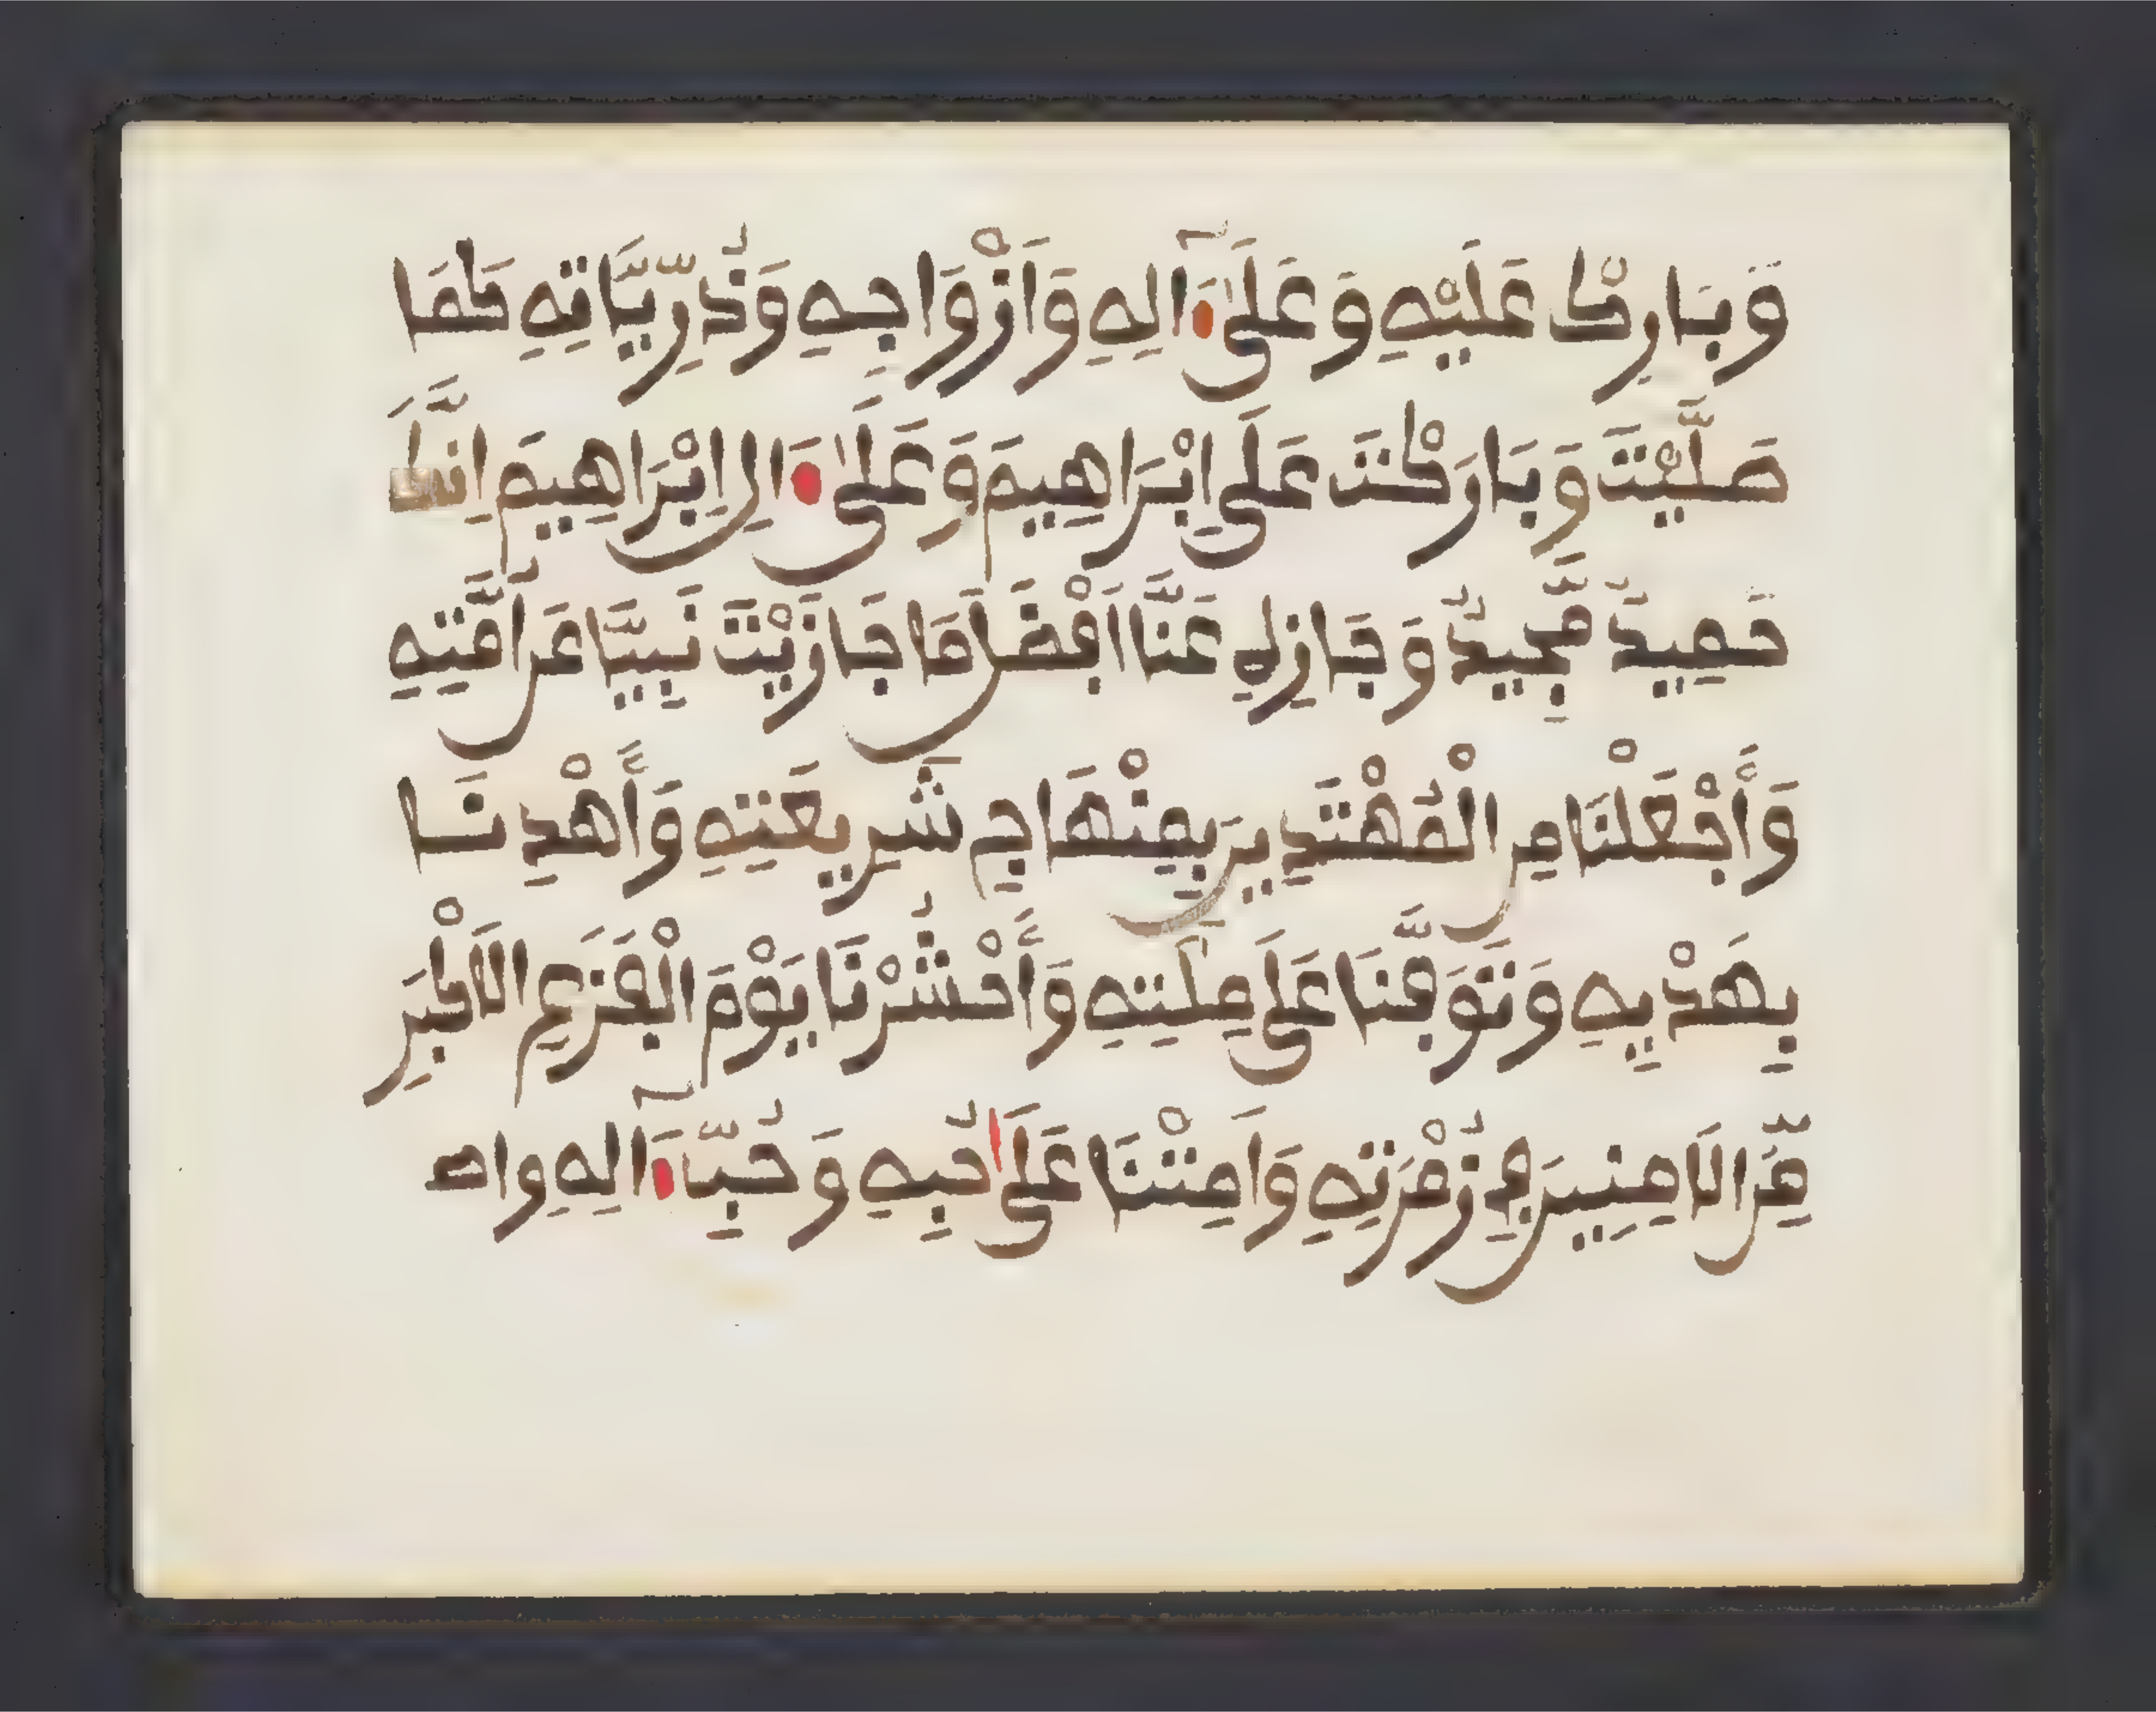 وَبَارِكْ عَلَيْهِ وَعَلَىٰ ءَالِهِ وَأَزْوَاجِهِ وَذُرِّيَّاتِهِ كَمَا
صَلَّيْتَ وَبَارَكْتَ عَلَى اِبْرَاهِيمَ وَعَلَىٰ ءَالِ اِبْرَاهِيمَ اِنَّكَ
حَمِيدٌ مَّجِيدٌ وَجَازِهِ عَنَّا اَفْضَلَ مَا جَازَيْتَ نَبِيًّا عَنُ امَّتِهِ
وَٱجْعَلْنَا مِنَ الْمُهْتَدِينَ بِمِنْهَاجِ شَرِيعَتِهِ وَٱهْدِنَا
بِهَدْيِهِ وَتَوَفَّنَا عَلَى مِلَّتِهِ وَٱحْشُرْنَا يَوْمَ الْفَزَعِ الَاكْبَرِ
مِّنَ الَامِنِينَ فِي زُمْرَتِهِ وَاَمِتْنَا عَلَىٰ حُبِّهِ وَحُبِّ ءَالِهِ وا